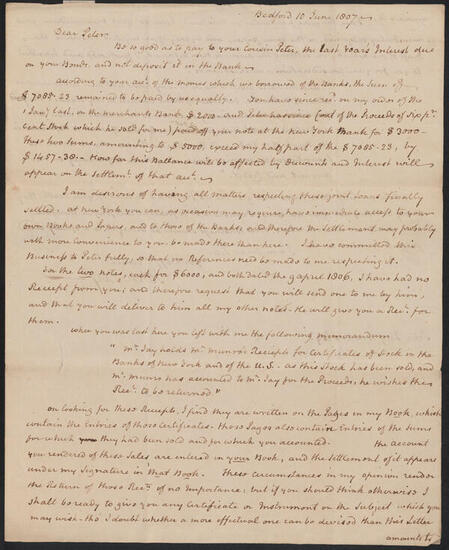 Bedford 10 June 1807
Dear Peter,
Be so good as to pay to your Cousin Peter, the last Year's Interest due
on your Bond, and not deposit it in the Bank
according to your acc.t of the monies which we borrowed of the Banks, the Sum of
$ 7085-23 remained to be paid by us equally. You have since rec.d on my order of the
1 Jan.y last, on the merchants Bank $ 2000 - and Peter has since (out of the Proceeds of
Stock which he sold for me) paid off your note at the New York Bank for $ 3000 -
these two sums, amounting to $ 5000, exceed my half part of the $ 7085-23, by
$ 1457-30 - How far this Ballance will be affected by Discounts and Interest will
appear on the Settlem.t of that acc.t
I am desirous of having all matters respecting these joint Loans finally
settled. at New York you can, as occasion may require, have immediate access to your
own Books and Papers, and to those of the Banks; and therefore the Settlement may probably
with more convenience to you be made there than here. I have committed this
Business to Peter fully, so that no References need be made to me respecting it.
For the two notes, each for $6000, and both dated the 9 april 1806, I have had no
Receipt from you; and therefore request that you will send one to me by him,
and that you will deliver to him all my other notes - He will give you a Rec.t for
them.
when you was last here you left with me the following memorandum
" M.r Jay holds M.r Munro's Receipts for Certificates of Stock in the
Banks of New York and of the U.S. as this Stock has been sold, and
M.r Munro has accounted to M.r Jay for the Proceeds, he wishes the
Rec.ts to be returned "
on looking for these Receipts, I find they are written on the Pages in my Book, which
contain the Entries of those Certificates. those Pages also contain Entries of the Sums
for which they had been sold and for which you accounted. The account
you rendered of these Sales are entered in your Book, and the Settlement of it appears
under my Signature in that Book. These circumstances in my opinion render
the Return of those Rec.ts of no Importance; but if you should think otherwise I
shall be ready to give you any Certificate or Instrument on the Subject which you
may wish - tho' I doubt whether a more effectual one can be devised than this Letter
amounts to